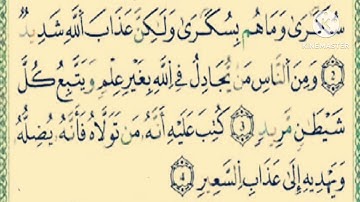 سُكَـٰرَىٰ وَمَا هُم بِسُكَـٰرَىٰ وَلَـٰكِنَّ عَذَابَ ٱللَّهِ شَدِيدٌ
KINEMASTER
٢ وَمِنَ ٱلنَّاسِ مَن يُجَـٰدِلُ فِى ٱللَّهِ بِغَيْرِ عِلْمٍ وَيَتَّبِعُ كُلَّ
شَيْطَـٰنٍ مَّرِيدٍ ٣ كُتِبَ عَلَيْهِ أَنَّهُۥ مَن تَوَلَّاهُ فَأَنَّهُۥ يُضِلُّهُۥ
وَيَهْدِيهِ إِلَىٰ عَذَابِ ٱلسَّعِيرِ ٤